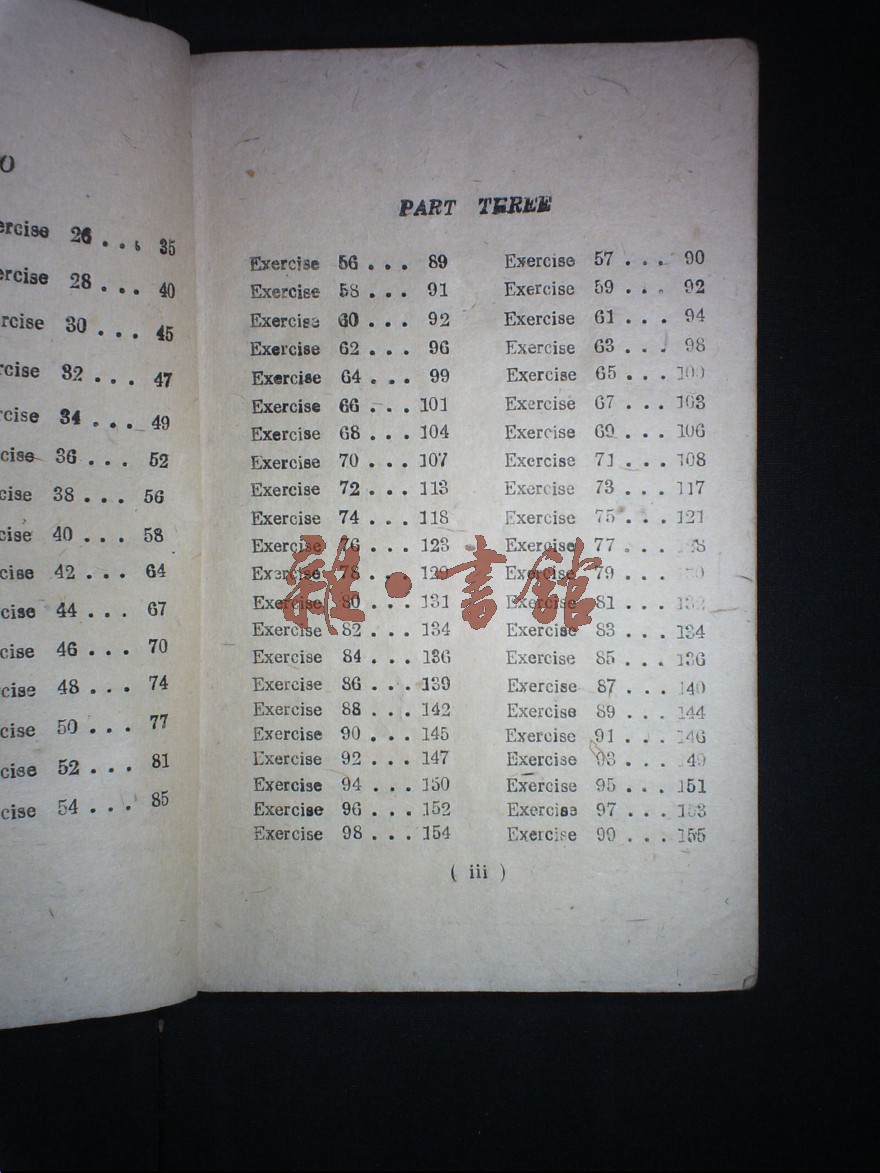 O
ercise 26 . . . 35
ercise 28 . . . 40
rcise 30 . . . 45
rcise 32 . . . 47
rcise 34 . . . 49
cise 36 . . . 52
cise 38 . . . 56
cise 40 . . . 58
cise 42 . . . 64
rcise 44 . . . 67
cise 46 . . . 70
rcise 48 . . . 74
cise 50 . . . 77
cise 52 . . . 81
cise 54 . . . 85
PART TEREE
Exercise 56 . . . 89 Exercise 57 . . . 90
Exercise 58 . . . 91 Exercise 59 . . . 92
Exercise 60 . . . 92 Exercise 61 . . . 94
Exercise 62 . . . 96 Exercise 63 . . . 98
Exercise 64 . . . 99 Exercise 65 . . . 100
Exercise 66 . . . 101 Exercise 67 . . . 103
Exercise 68 . . . 104 Exercise 69 . . . 106
Exercise 70 . . . 107 Exercise 71 . . . 108
Exercise 72 . . . 113 Exercise 73 . . . 117
Exercise 74 . . . 118 Exercise 75 . . . 121
Exercise 76 . . . 123 Exercise 77 . . .
Exercise 78 . . . Exercise 79 . . .
雜·書館
Exercise 80 . . . 131 Exercise 81 . . . 132
Exercise 82 . . . 134 Exercise 83 . . . 134
Exercise 84 . . . 136 Exercise 85 . . . 136
Exercise 86 . . . 139 Exercise 87 . . . 140
Exercise 88 . . . 142 Exercise 89 . . . 144
Exercise 90 . . . 145 Exercise 91 . . . 146
Exercise 92 . . . 147 Exercise 93 . . . 49
Exercise 94 . . . 150 Exercise 95 . . . 151
Exercise 96 . . . 152 Exercise 97 . . . 153
Exercise 98 . . . 154 Exercise 99 . . . 155
( iii )